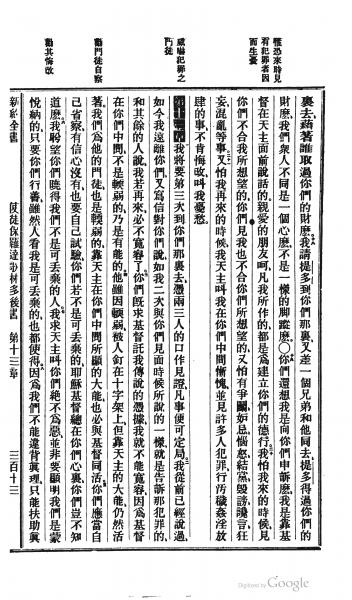 惟恐來時見
看犯罪者因
而生憂
裏去藉著誰取過你們的財麽我請提多到你們那裏又差一個兄弟和他同去提多得過你們的
財麽我們衆人不同是一個心麽不是一樣的脚蹤麽○你們還想我是向你們申訴麽我是靠基
督在天主面前說話的親愛的朋友呵凡我所作的都是爲建立你們的德行我怕我來的時候見
你們不合我所想望的你們見我也不合你們所想望的又怕有爭鬭妒忌惱怒結黨毀謗讒言狂
妄混亂等事又怕我再來的時候我天主叫我在你們中間慚愧並見許多人犯罪行汚穢姦淫放
肆的事不肯悔改叫我憂愁
威嚇犯罪之
門徒
第十三章我將要第三次到你們那裏去憑兩三人的口作見證凡事便可定局我從前已經說過
如今我遠離你們又寫信對你們說如我二次與你們見面時候所說的一樣就是告訴那犯罪的
和其餘的人說我若再來必不寬容了你們旣求基督託我傳說的憑據我就不能寬容因爲基督
在你們中間不是輭弱的乃是有能的他雖因輭弱被人釘在十字架上但靠天主的大能仍然活
勸門徒自察
著我們爲他的門徒也是輭弱的靠天主在你們中間所顯的大能也必與基督同活你們應當自
己省察有信心沒有也要自己試驗你們若不是可丟棄的耶穌基督總在你們心裏你們豈不知
勸其悔改
道麽我盼望你們曉得我們不是可丟棄的人我求天主叫你們絕不爲惡並非要顯明我們是蒙
悅納的只要你們行善雖然人看我是可丟棄的也都使得因爲我們不能違背眞理只能扶助眞
新約全書 使徒保羅達哥林多後書 第十三章 三百十三
Digitized by Google